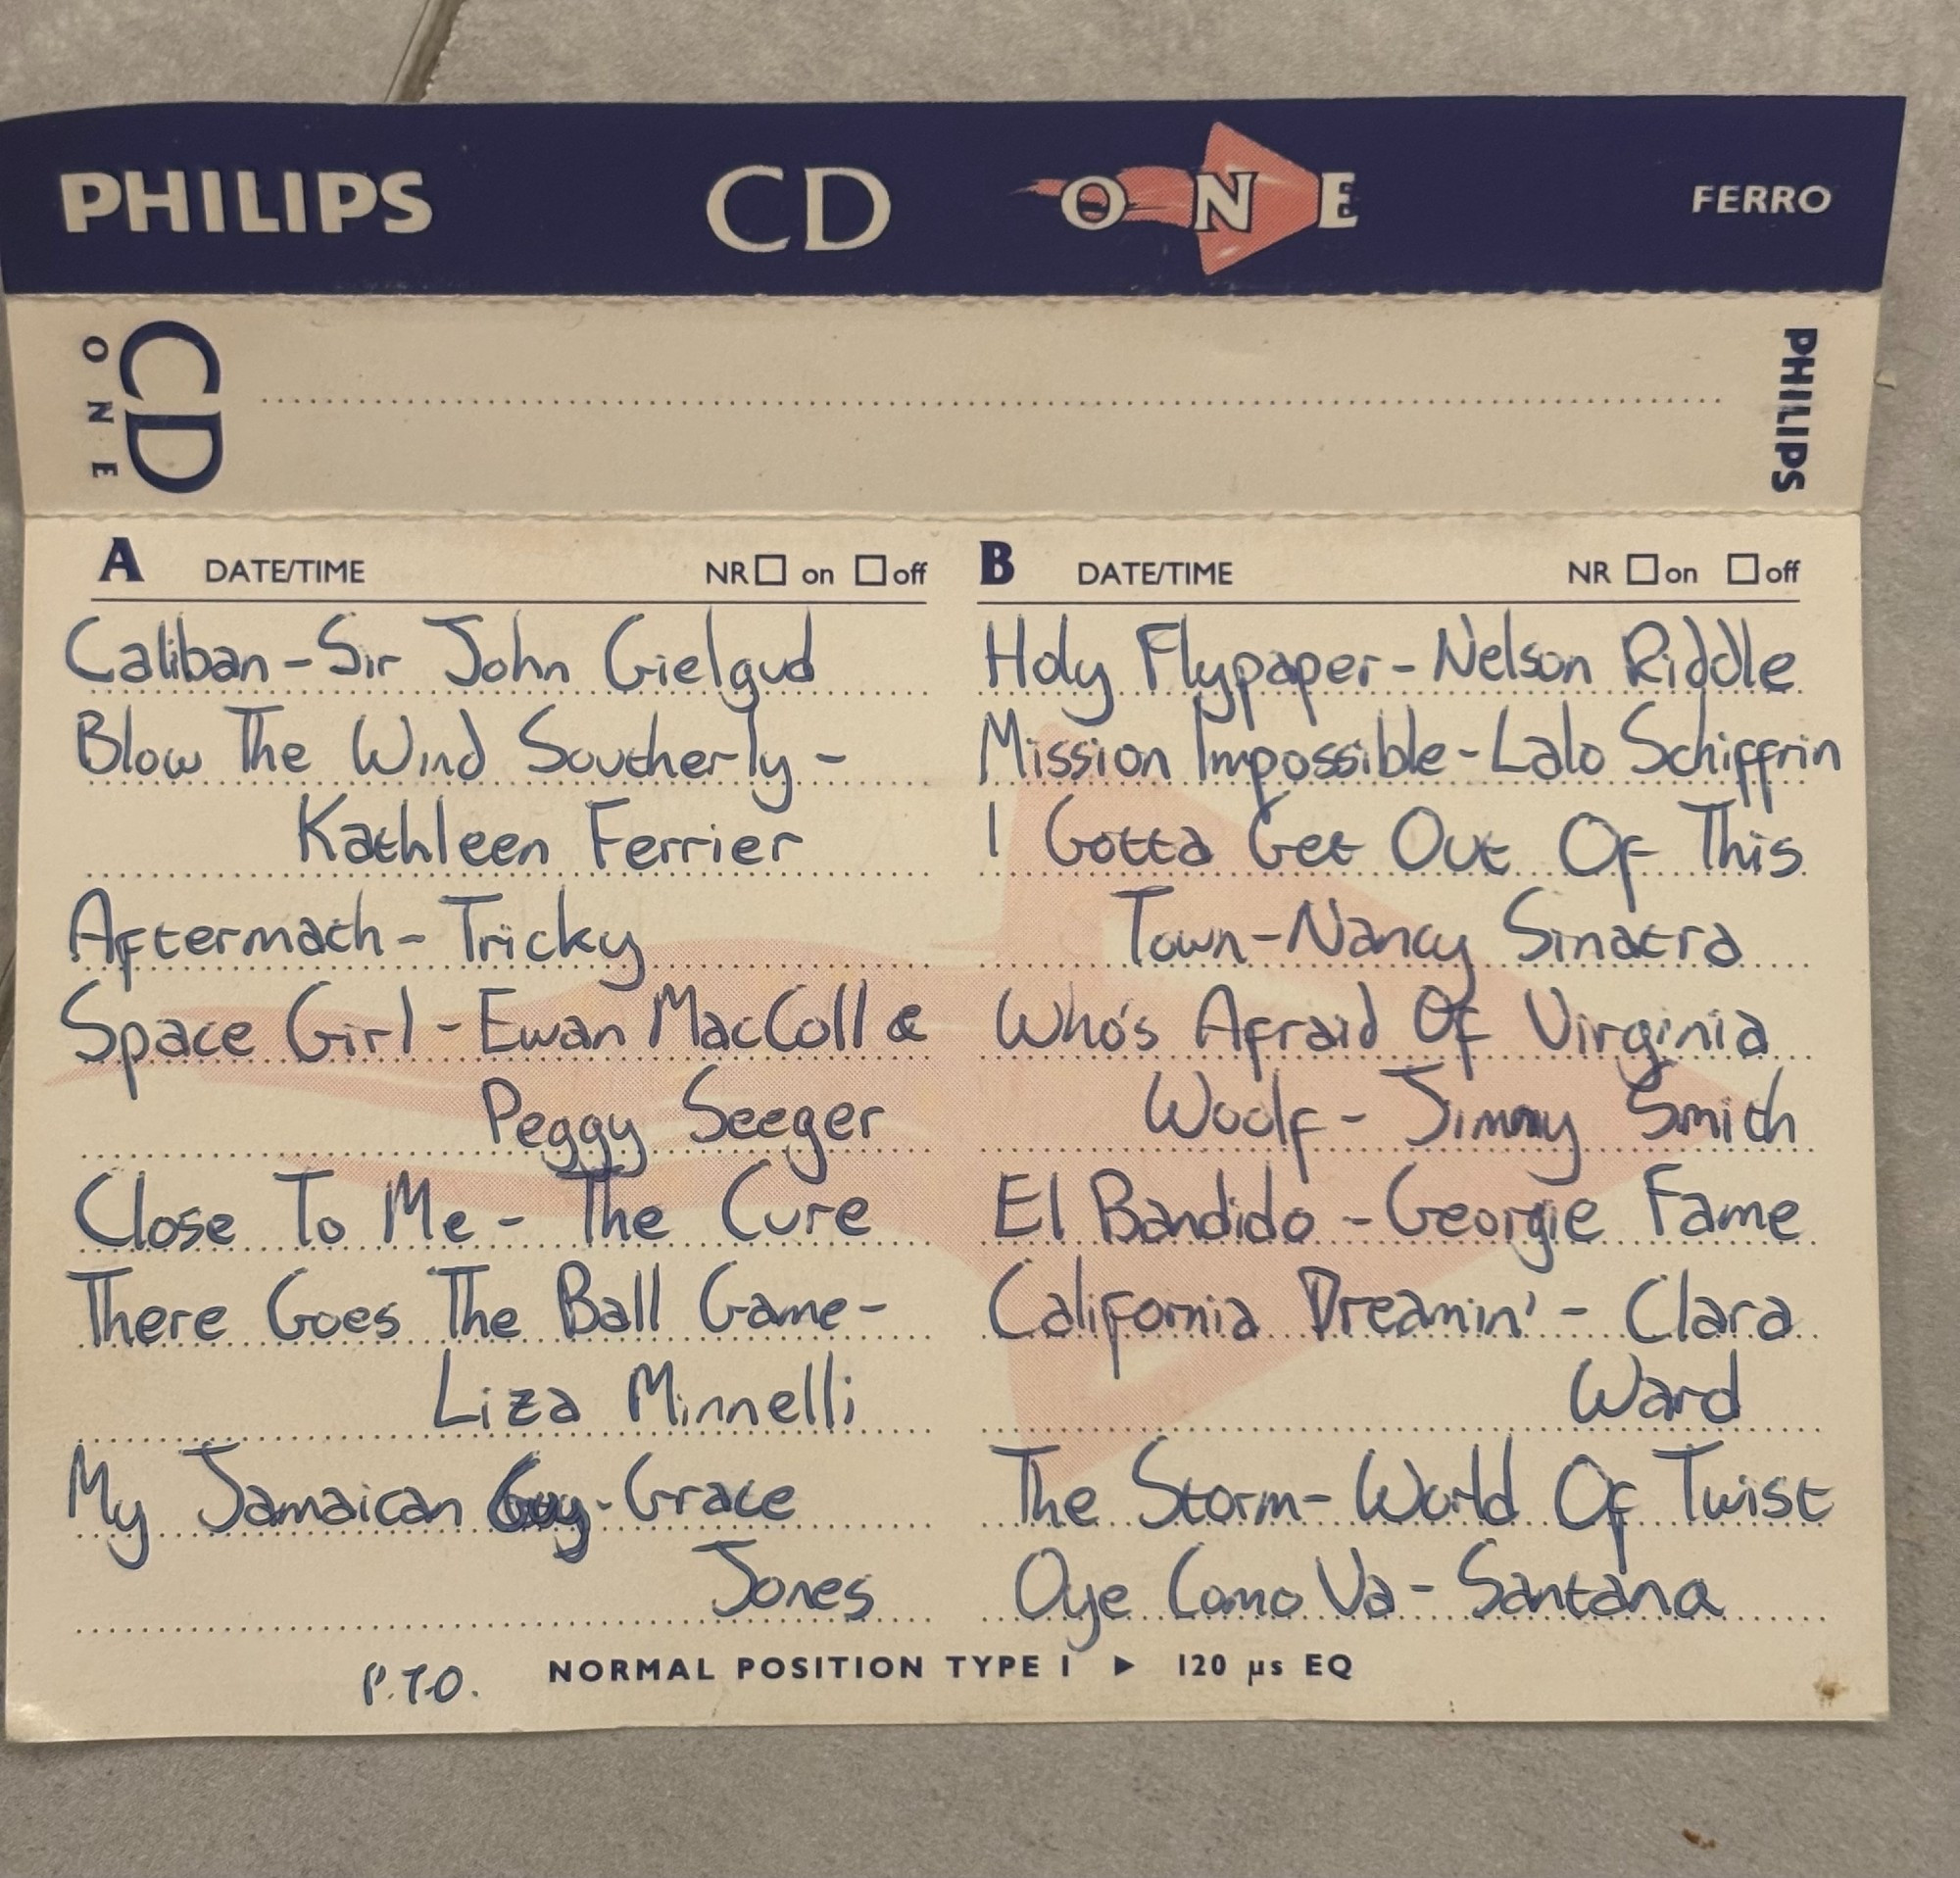 PHILIPS CD ONE FERRO
CD ONE
PHILIPS
A DATE/TIME NR on off
Caliban - Sir John Gielgud
Blow The Wind Southerly -
Kathleen Ferrier
Aftermath - Tricky
Space Girl - Ewan MacColl &
Peggy Seeger
Close To Me - The Cure
There Goes The Ball Game -
Liza Minnelli
My Jamaican Guy - Grace
Jones
B DATE/TIME NR on off
Holy Flypaper - Nelson Riddle
Mission Impossible - Lalo Schiffrin
I Gotta Get Out Of This
Town - Nancy Sinatra
Who's Afraid Of Virginia
Woolf - Jimmy Smith
El Bandido - Georgie Fame
California Dreamin' - Clara
Ward
The Storm - World Of Twist
Oye Como Va - Santana
P.T.O. NORMAL POSITION TYPE I ▶ 120 µs EQ